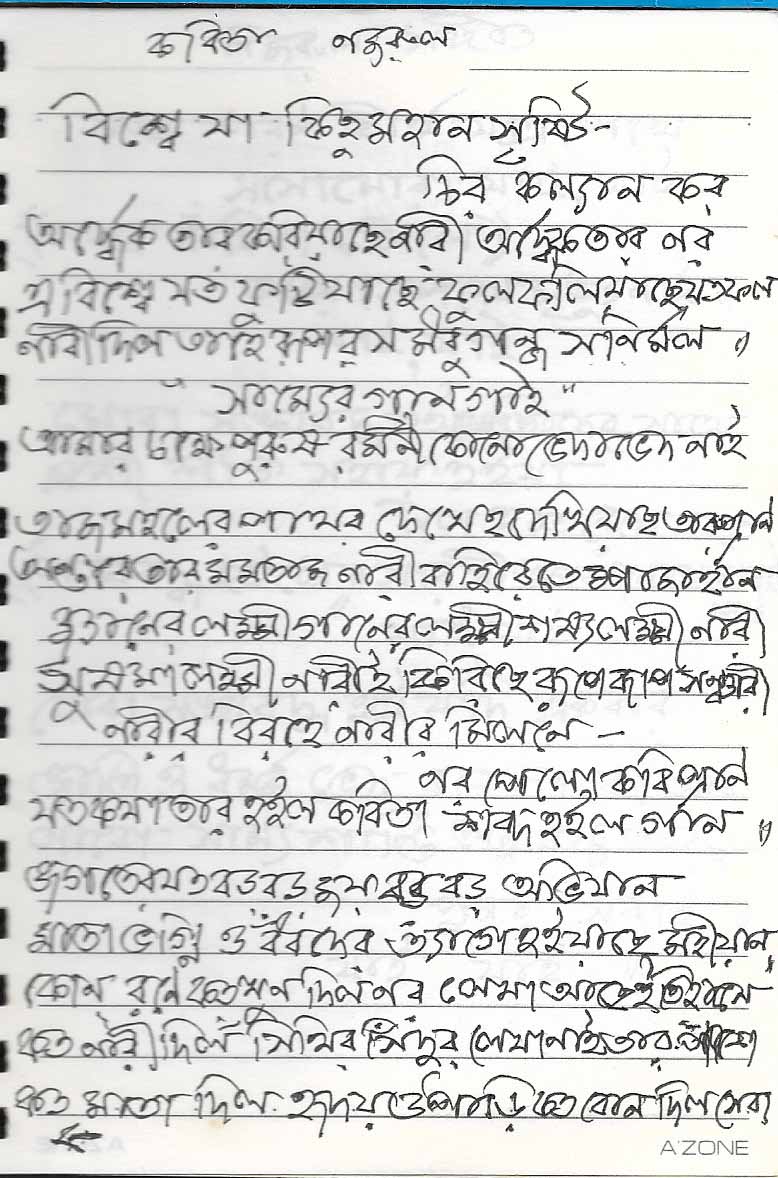 কবিতা নজরুল
বিশ্বে যা কিছু মহান সৃষ্টি -
চির কল্যান কর
আর্দ্ধেক তার করিয়াছে নারী আর্দ্ধেক তার নর
এ বিশ্বে যত ফুটিয়াছে ফুল ফলিয়াছে যত ফল
নারী দিল তাহে রূপ রস মধু গন্ধ সুনির্মল ॥
" সাম্যের গান গাই "
আমার চক্ষে পুরুষ রমনী কোনো ভেদাভেদ নাই
তাজমহলের পাথর দেখেছ দেখিয়াছ তার প্রান
অন্তরে তার মমতাজ নারী বাহিরেতে শাজাহান
জ্ঞানের লক্ষ্মী গানের লক্ষ্মী শস্য লক্ষ্মী নারী
সুসমা লক্ষ্মী নারীই ফিরিছে রূপে রূপে সঞ্চারী
নারীর বিরহে নারীর মিলনে -
নর পেলো কবি প্রান
যত কথা তার হইল কবিতা শব্দ হইল গান ॥
জগতের যত বড় বড় জয় বড় বড় অভিযান
মাতা ভগ্নি ও বধুদের ত্যাগে হইয়াছে মহীয়ান
কোন রনে কত খুন দিল নর লেখা আছে ইতিহাসে
কত নারী দিল সিথির সিদুর লেখা নাই তার পাশে
কত মাতা দিল হৃদয় উপাড়ি কত বোন দিল সেবা
A'ZONE